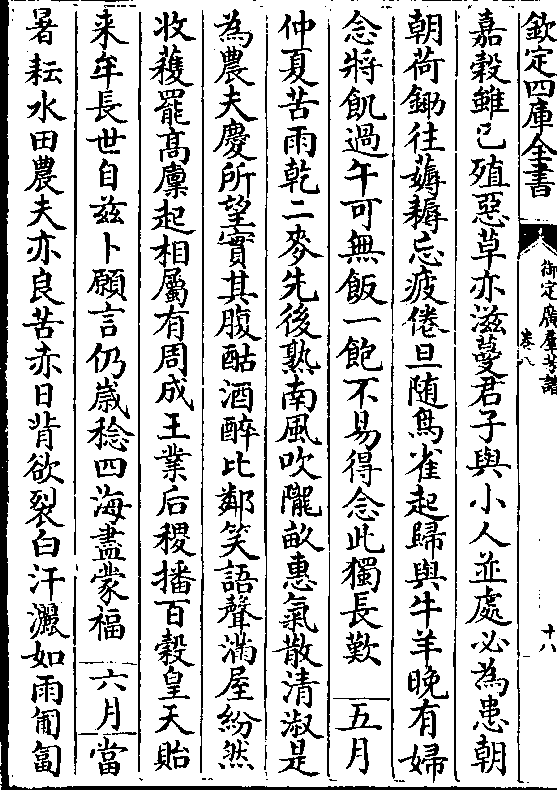 欽定四庫全書
御定廣羣芳譜
卷八
十八
嘉榖雖已殖惡草亦滋蔓君子與小人並處必為患朝
朝荷鋤往薅耨忘疲倦旦随鳥雀起歸與牛羊晚有婦
念將飢過午可無飯一飽不易得念此獨長歎 五月
仲夏苦雨乾二麥先後熟南風吹隴畝惠氣散清淑是
為農夫慶所望實其腹酤酒醉比鄰笑語聲滿屋紛然
收穫罷高廪起相屬有周成王業后稷播百榖皇天貽
来牟長世自兹卜願言仍歲稔四海盡蒙福 六月 當
暑耘水田農夫亦良苦赤日背欲裂白汗灑如雨匍匐